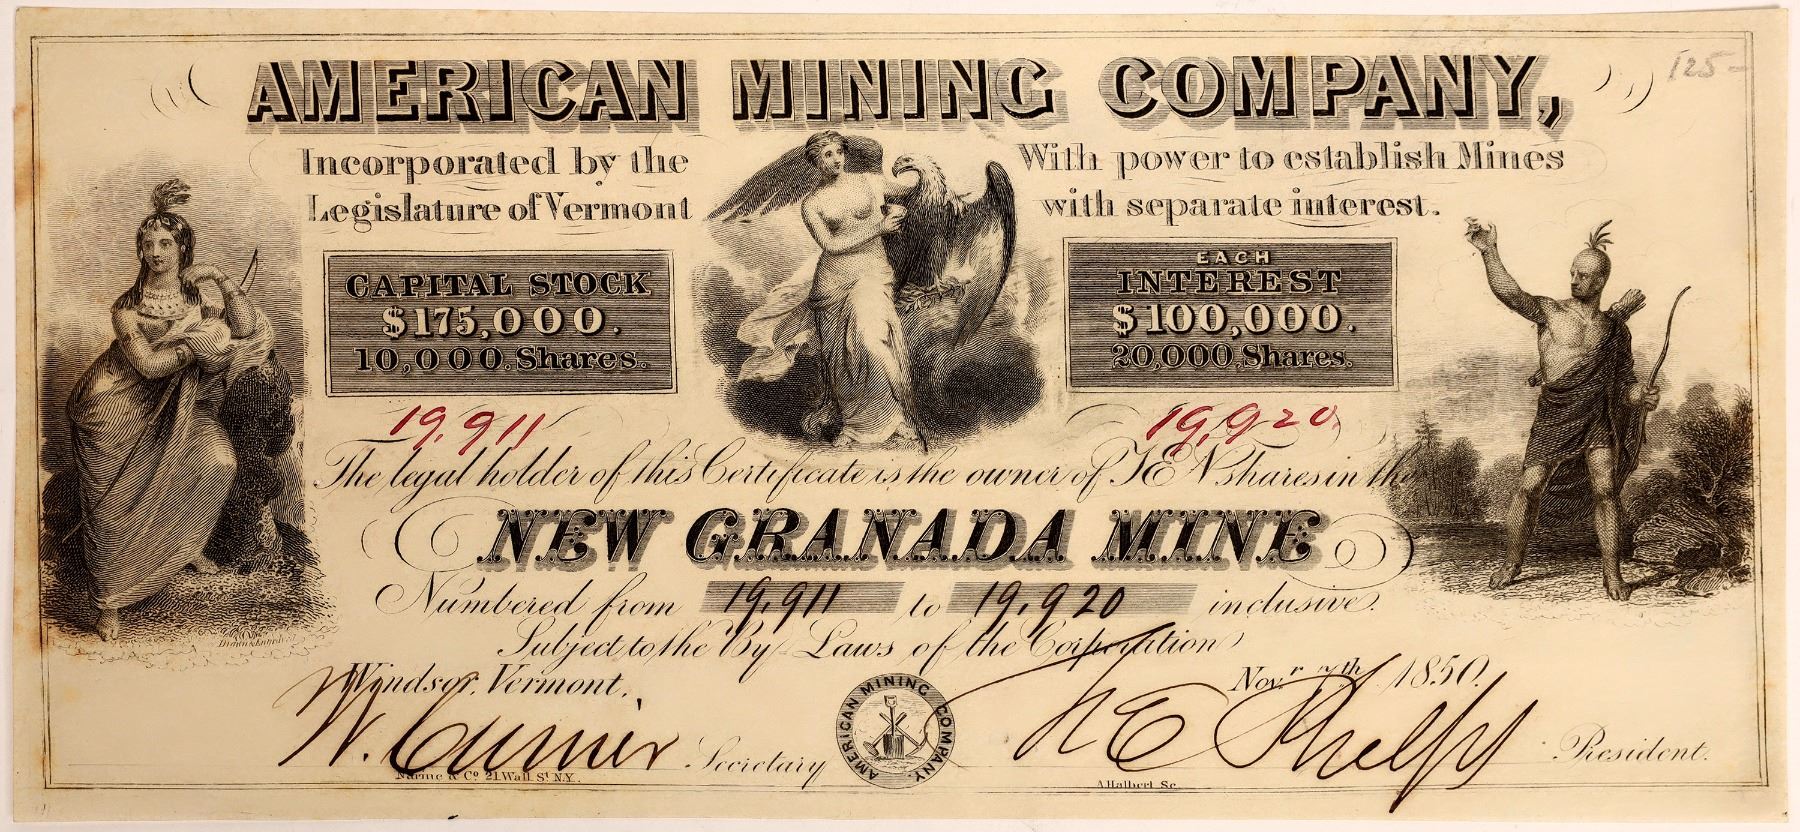 AMERICAN MINING COMPANY,
125-
Incorporated by the
Legislature of Vermont
With power to establish Mines
with separate interest.
CAPITAL STOCK
$175,000.
10,000. Shares.
EACH
INTEREST
$100,000.
20,000. Shares.
19,911
19,920
The legal holder of this Certificate is the owner of TEN shares in the
NEW GRANADA MINE
Numbered from 19,911 to 19,920 inclusive.
Subject to the By-Laws of the Corporation
Windsor, Vermont.
Novr 7th 1850.
N. Currier Secretary
AMERICAN MINING COMPANY.
N E Phelps President.
Narine & Co 21 Wall St N.Y.
A. Halbert Sc.